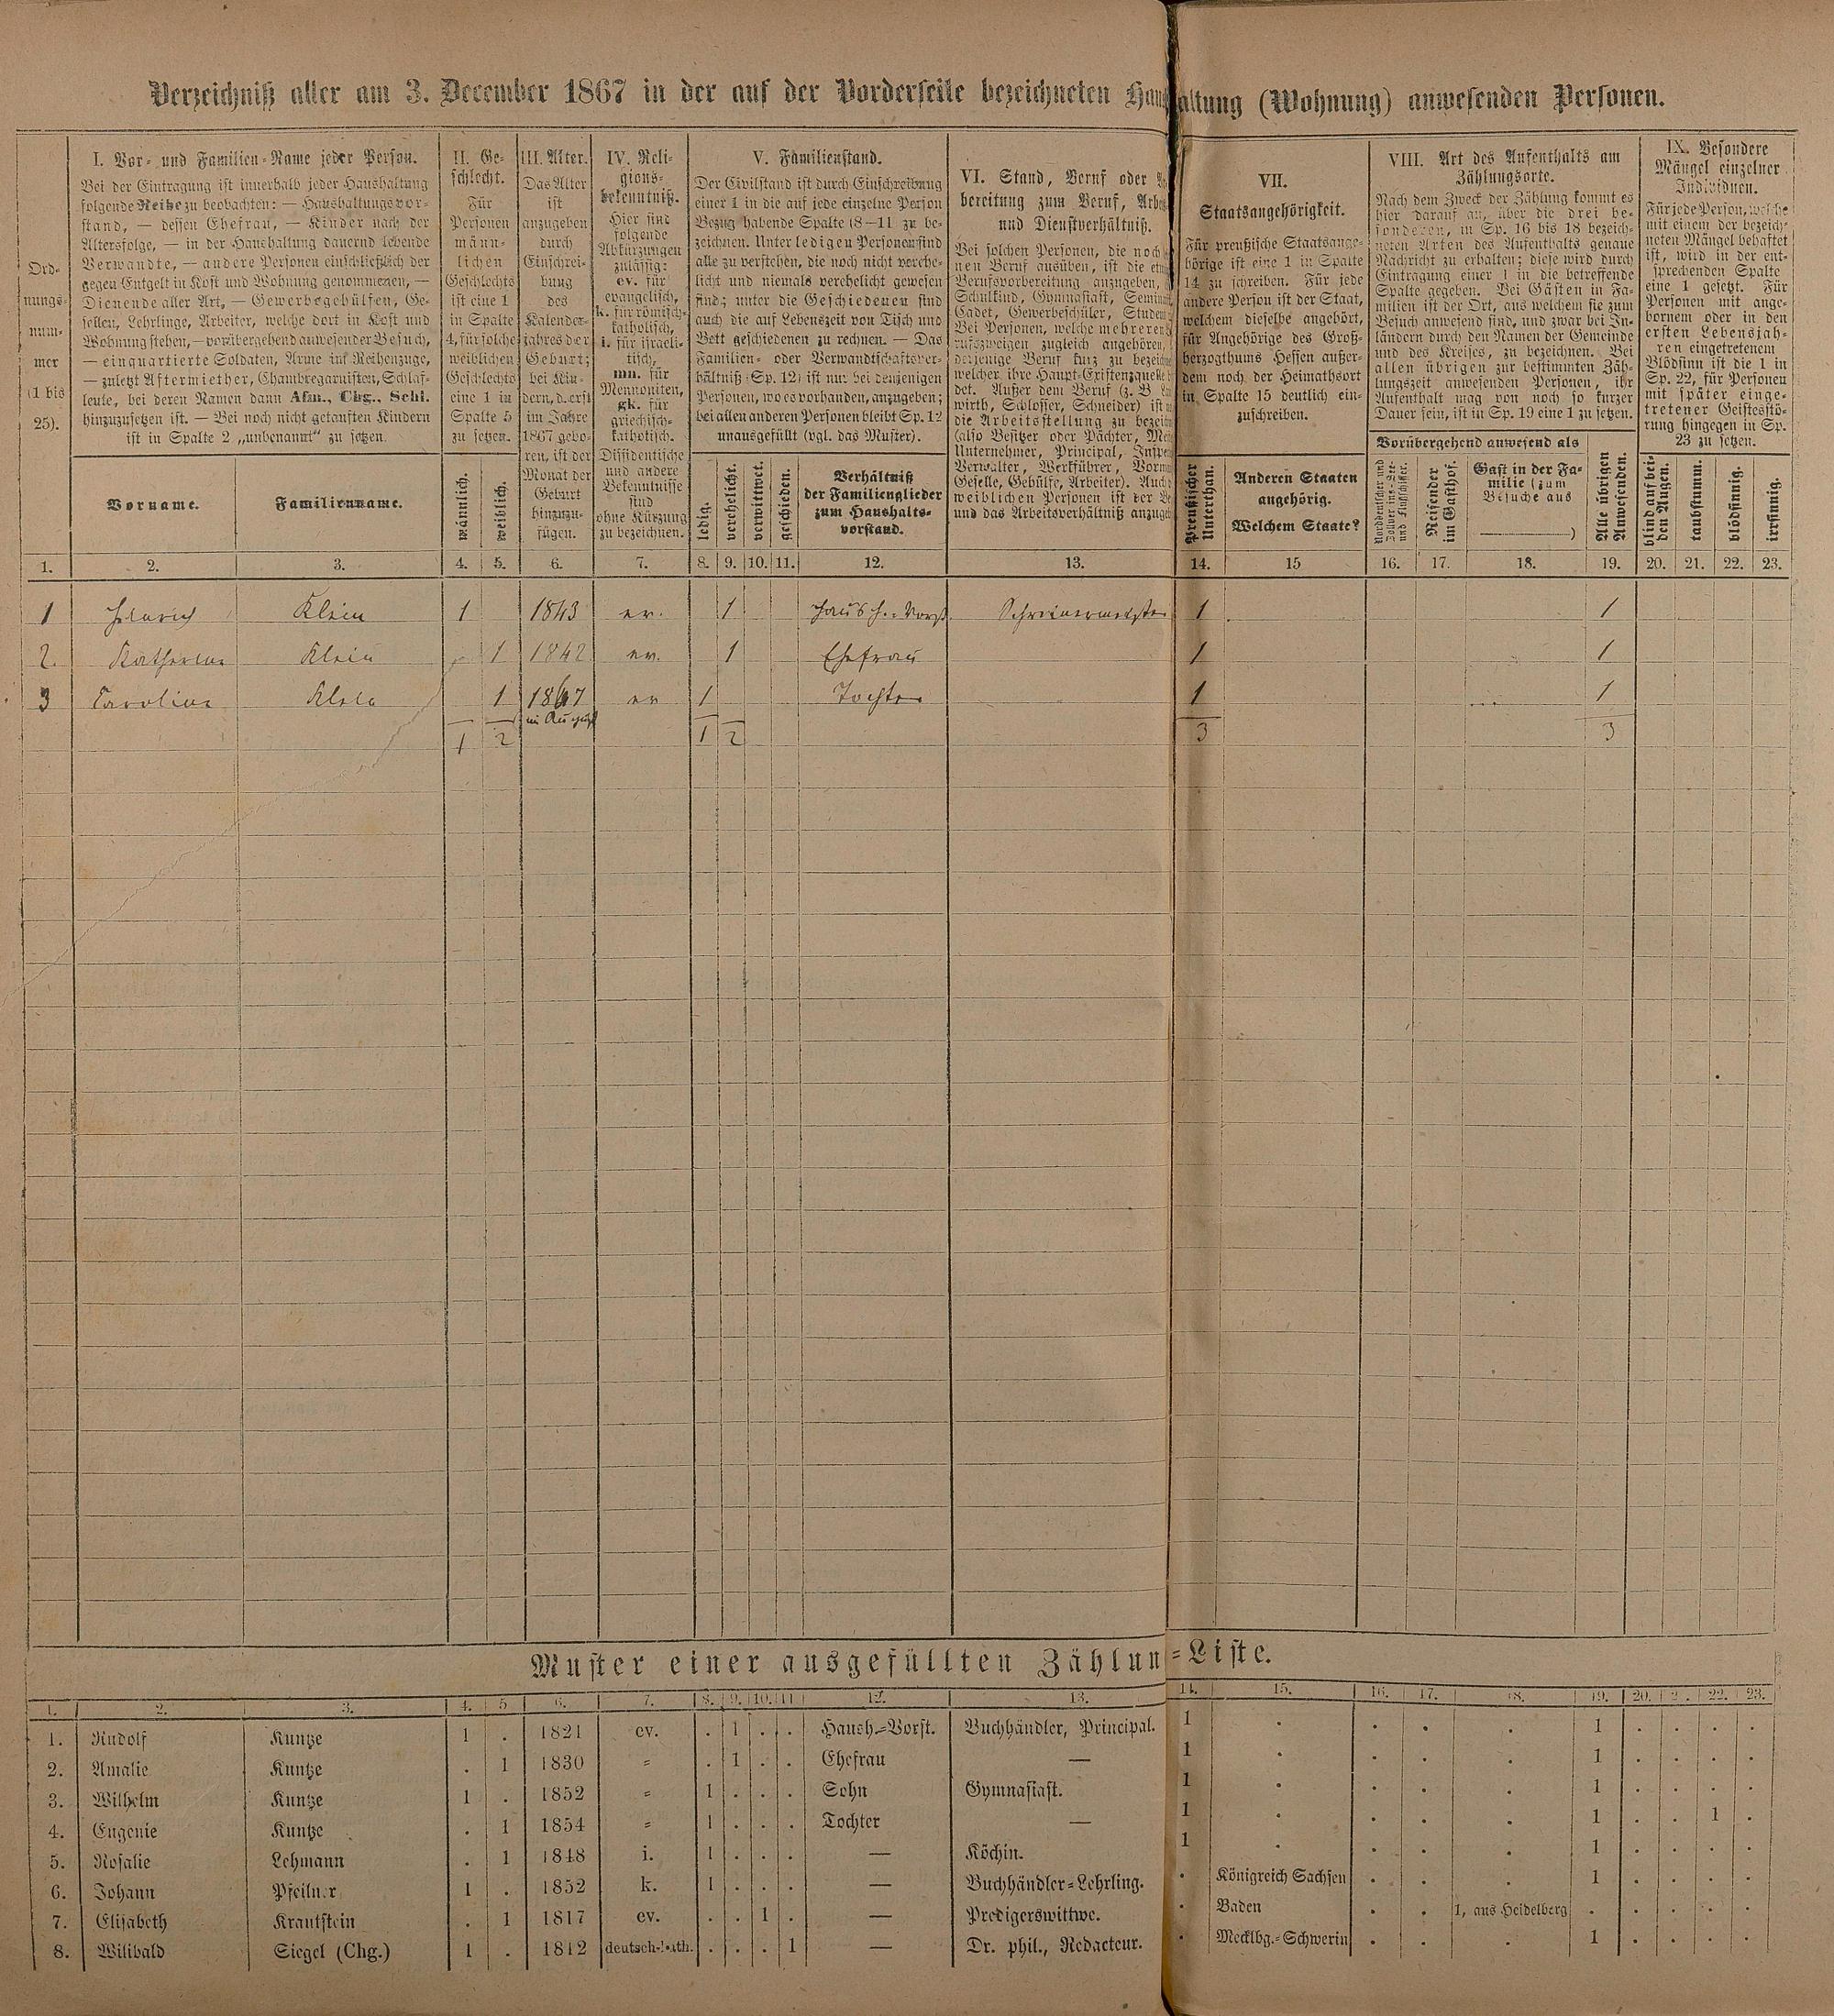 Verzeichniß aller am 3. December 1867 in der auf der Vorderseite bezeichneten Haus altung (Wohnung) anwesenden Personen.
Ord-
nungs-
num-
mer
(1 bis
25).
I. Vor- und Familien-Name jeder Person.
Bei der Eintragung ist innerhalb jeder Haushaltung
folgende Reihe zu beobachten: — Haushaltungsvor-
stand, — dessen Ehefrau, — Kinder nach der
Altersfolge, — in der Haushaltung dauernd lebende
Verwandte, — andere Personen einschließlich der
gegen Entgelt in Kost und Wohnung genommenen, —
Dienende aller Art, — Gewerbsgehülfen, Ge-
sellen, Lehrlinge, Arbeiter, welche dort in Kost und
Wohnung stehen, — vorübergehend anwesender Besuch,
— einquartierte Soldaten, Arme im Reihenzuge,
— zuletzt Aftermiether, Chambregarnisten, Schlaf-
leute, bei deren Namen dann Afm., Chg., Schl.
hinzuzusetzen ist. — Bei noch nicht getauften Kindern
ist in Spalte 2 „unbenannt“ zu setzen.
Vorname.
Familienname.
II. Ge-
schlecht.
Für
Personen
männ-
lichen
Geschlechts
ist eine 1
in Spalte
4, für solche
weiblichen
Geschlechts
eine 1 in
Spalte 5
zu setzen.
männlich.
weiblich.
III. Alter.
Das Alter
ist
anzugeben
durch
Einschrei-
bung
des
Kalender-
jahres der
Geburt;
bei Kin-
dern, d. erst
im Jahre
1867 gebo-
ren, ist der
Monat der
Geburt
hinzuzu-
fügen.
IV. Reli-
gions-
bekenntniß.
Hier sind
folgende
Abkürzungen
zulässig:
ev. für
evangelisch,
k. für römisch-
katholisch,
i. für israeli-
tisch,
mn. für
Mennoniten,
gk. für
griechisch-
katholisch.
Dissidentische
und andere
Bekenntnisse
sind
ohne Kürzung
zu bezeichnen.
V. Familienstand.
Der Civilstand ist durch Einschreibung
einer 1 in die auf jede einzelne Person
Bezug habende Spalte (8—11) zu be-
zeichnen. Unter ledigen Personen sind
alle zu verstehen, die noch nicht vereche-
licht und niemals verehelicht gewesen
sind; unter die Geschiedenen sind
auch die auf Lebenszeit von Tisch und
Bett geschiedenen zu rechnen. — Das
Familien- oder Verwandtschaftsver-
hältniß (Sp. 12) ist nur bei denjenigen
Personen, wo es vorhanden, anzugeben;
bei allen anderen Personen bleibt Sp. 12
unausgefüllt (vgl. das Muster).
ledig.
verehelicht.
verwittwet.
geschieden.
Verhältniß
der Familienglieder
zum Haushalts-
vorstand.
VI. Stand, Beruf oder
bereitung zum Beruf,
und Dienstverhältniß.
Bei solchen Personen, die noch
nen Beruf ausüben, ist die
Berufsvorbereitung anzugeben,
Schulkind, Gymnasiast,
Cadet, Gewerbeschüler,
Bei Personen, welche mehreren
rufszweigen zugleich angehören,
derjenige Beruf kurz zu
welcher ihre Haupt-Existenzquelle
det. Außer dem Beruf (z. B.
wirth, Schlosser, Schneider) ist
die Arbeitsstellung zu
(also Besitzer oder Pächter,
Unternehmer, Principal,
Verwalter, Werkführer,
Geselle, Gehülfe, Arbeiter).
weiblichen Personen ist der
und das Arbeitsverhältniß
VII.
Staatsangehörigkeit.
Für preußische Staatsange-
hörige ist eine 1 in Spalte
14 zu schreiben. Für jede
andere Person ist der Staat,
welchem dieselbe angehört,
für Angehörige des Groß-
herzogthums Hessen außer-
dem noch der Heimathsort
in Spalte 15 deutlich ein-
zuschreiben.
Preußischer
Unterthan.
Anderen Staaten
angehörig.
Welchem Staate?
VIII. Art des Aufenthalts am
Zählungsorte.
Nach dem Zweck der Zählung kommt es
hier darauf an, über die drei be-
sonderen, in Sp. 16 bis 18 bezeich-
neten Arten des Aufenthalts genaue
Nachricht zu erhalten; diese wird durch
Eintragung einer 1 in die betreffende
Spalte gegeben. Bei Gästen in Fa-
milien ist der Ort, aus welchem sie zum
Besuch anwesend sind, und zwar bei In-
ländern durch den Namen der Gemeinde
und des Kreises, zu bezeichnen. Bei
allen übrigen zur bestimmten Zäh-
lungszeit anwesenden Personen, ihr
Aufenthalt mag von noch so kurzer
Dauer sein, ist in Sp. 19 eine 1 zu setzen.
Vorübergehend anwesend als
Norddeutscher und
Zollver ins-See-
und Flußschiffer.
Reisender
im Gasthof.
Gast in der Fa-
milie (zum
Besuche aus
)
Alle übrigen
Anwesenden.
IX. Besondere
Mängel einzelner
Individuen.
Für jede Person, welche
mit einem der bezeich-
neten Mängel behaftet
ist, wird in der ent-
sprechenden Spalte
eine 1 gesetzt. Für
Personen mit ange-
bornem oder in den
ersten Lebensjah-
ren eingetretenem
Blödsinn ist die 1 in
Sp. 22, für Personen
mit später einge-
tretener Geistesstö-
rung hingegen in Sp.
23 zu setzen.
blind auf bei-
den Augen.
taubstumm.
blödsinnig.
irrsinnig.
1. 2. 3. 4. 5. 6. 7. 8. 9. 10. 11. 12. 13. 14. 15 16. 17. 18. 19. 20. 21. 22. 23.
1 Heinrich Klein 1 1843 ev. 1 Haush.-Vorst. Schreinermeister 1 1
2. Katherine Klein 1 1842 ev. 1 Ehefrau 1 1
3 Caroline Klein 1 1867 ev 1 Tochter 1 1
im August
1 2 1 2 3 3
Muster einer ausgefüllten Zählun =Liste.
1. 2. 3. 4. 5 6. 7. 8. 9. 10. 11 12. 13. 14. 15. 16. 17. 18. 19. 20. 2 . 22. 23.
1. Rudolf Kuntze 1 . 1821 ev. . 1 . . Haush.=Vorst. Buchhändler, Principal. 1 . . . . 1 . . . .
2. Amalie Kuntze . 1 1830 = . 1 . . Ehefrau — 1 . . . . 1 . . . .
3. Wilhelm Kuntze 1 . 1852 = 1 . . . Sohn Gymnasiast. 1 . . . . 1 . . . .
4. Eugenie Kuntze . 1 1854 = 1 . . . Tochter — 1 . . . . 1 . . 1 .
5. Rosalie Lehmann . 1 1848 i. 1 . . . — Köchin. 1 . . . . 1 . . . .
6. Johann Pfeilner 1 . 1852 k. 1 . . . — Buchhändler=Lehrling. . Königreich Sachsen . . . 1 . . . .
7. Elisabeth Krautstein . 1 1817 ev. . . 1 . — Predigerswittwe. . Baden . . 1, aus Heidelberg . . . . .
8. Wilibald Siegel (Chg.) 1 . 1812 deutsch-kath. . . . 1 — Dr. phil., Redacteur. . Mecklbg.=Schwerin . . . 1 . . . .